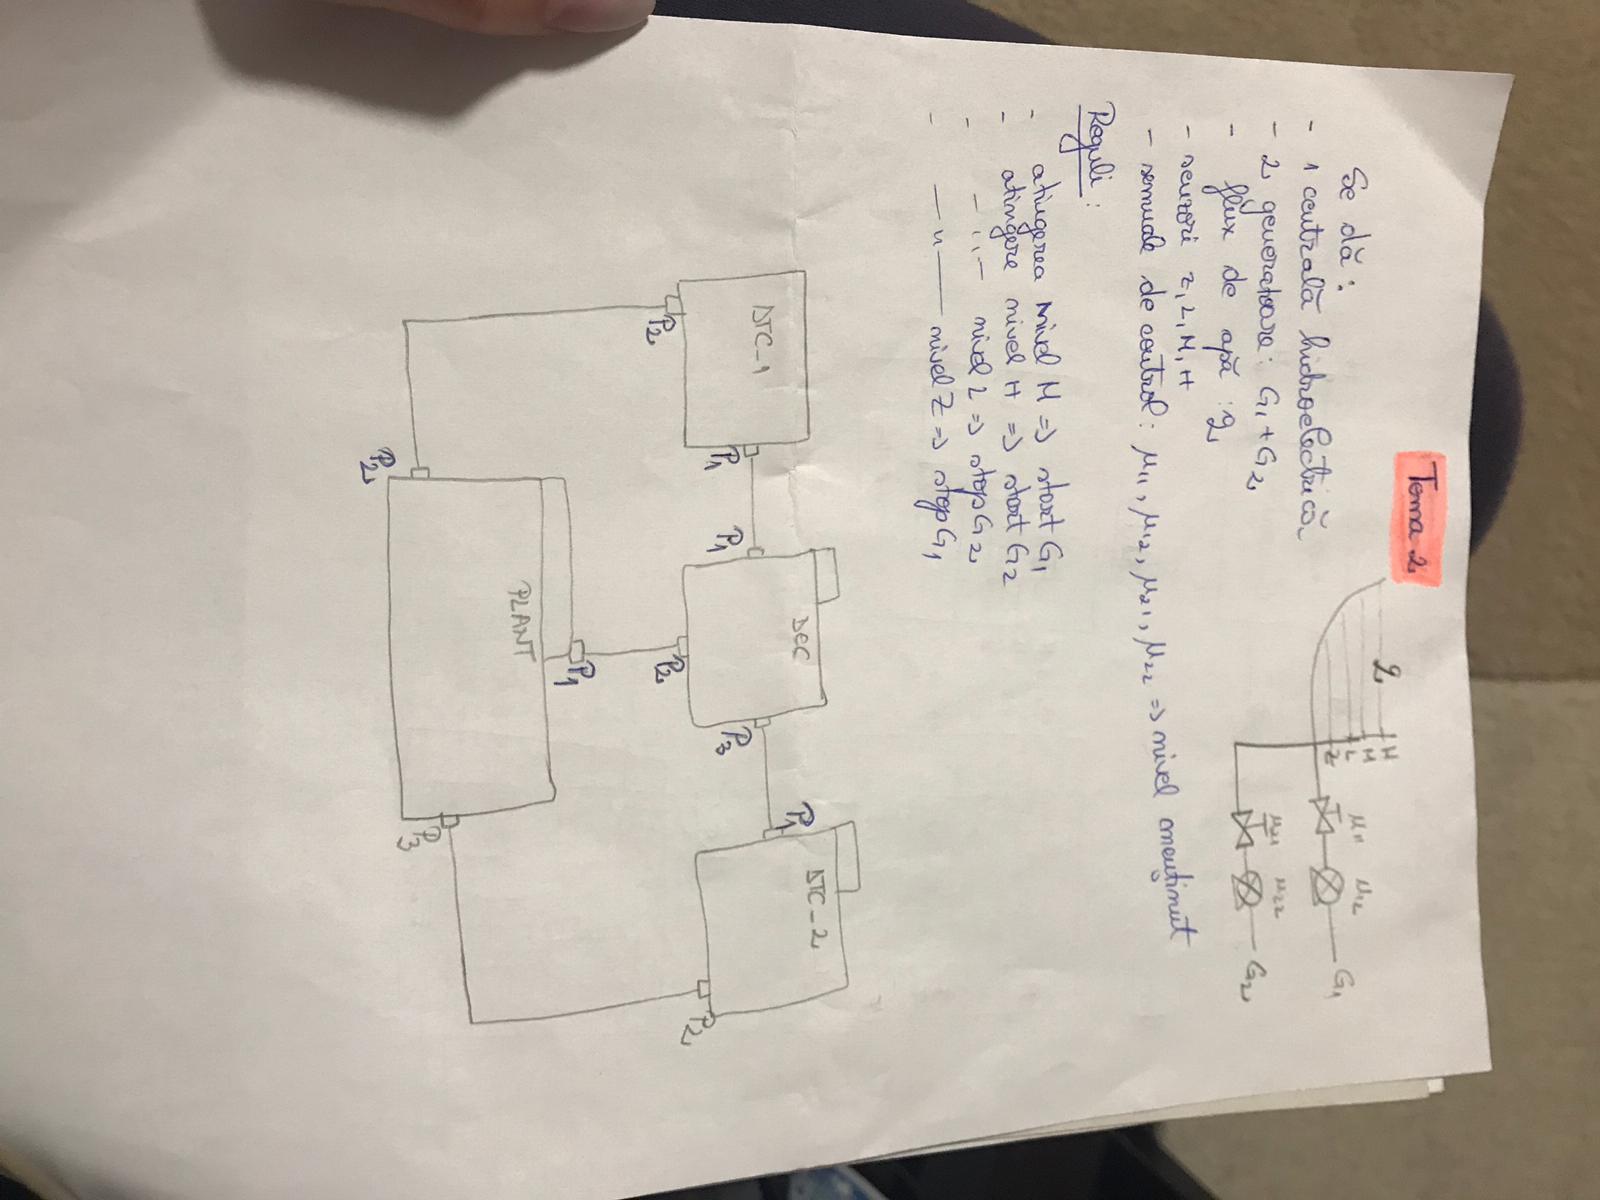 Tema 2
Se dă:
- 1 centrală hidroelectrică
- 2 generatoare: G1 + G2
- flux de apă: q
- senzori Z, L, M, H
- semnale de control: μ11, μ12, μ21, μ22 => nivel menținut
q
H
M
L
Z
μ11 μ12 G1
μ21 μ22 G2
Reguli:
- atingerea nivel M => start G1
- atingere nivel H => start G2
- -"- nivel L => stop G2
- -"- nivel Z => stop G1
DTC-1 DEC DTC-2
P1 P1 P3 P1
P2 P2 P2
P1
PLANT
P2 P3